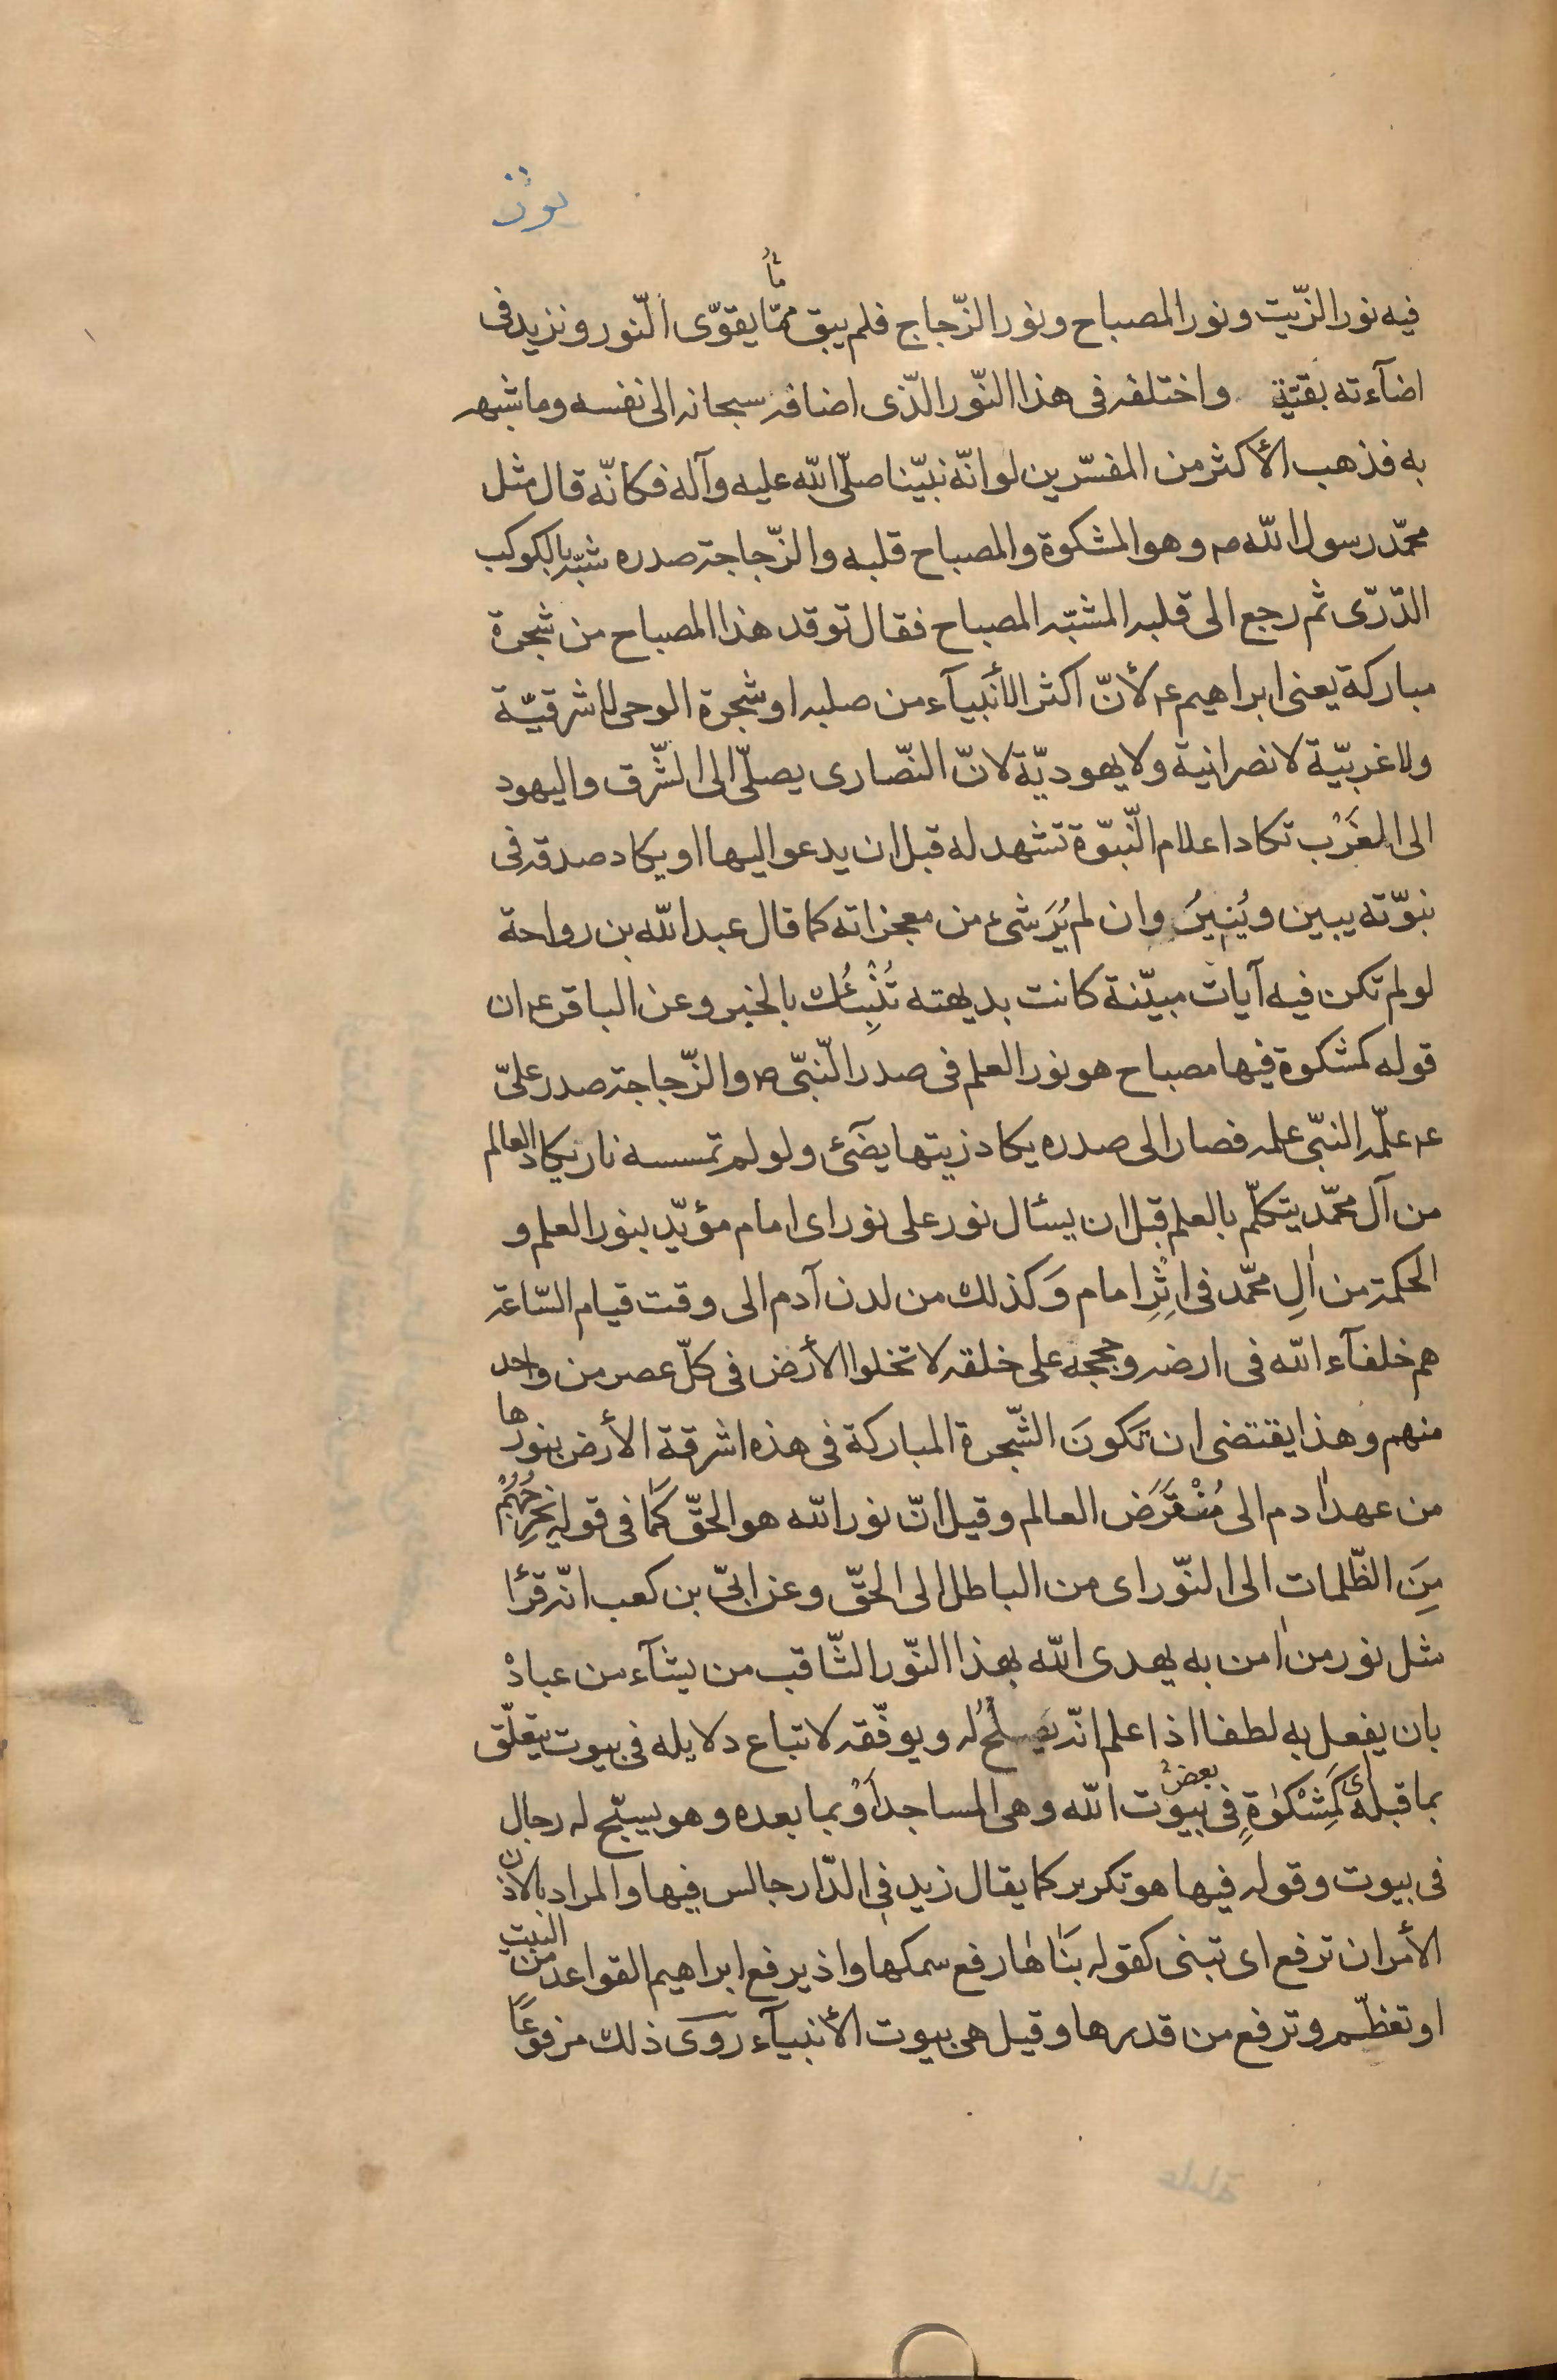 فيه نور الزّيت و نور المصباح و نور الزّجاج فلم يبق ممّا يقوّى النّور و نزيد فى
اضآءته بقيّة واختلف فى هذا النّور الّذى اضافه سبحانه الى نفسه وما شبهه
به فذهب الأكثر من المفسّرين لو انّه نبيّنا صلّى الله عليه وآله فكانّه قال مثل
محمّد رسول الله ص وهو المشكوة والمصباح قلبه والزّجاجة صدره شبّه بالكوكب
الدّرّى ثم رجع الى قلبه المشبّه المصباح فقال توقد هذا المصباح من شجرة
مباركة يعنى ابراهيم ع لأنّ اكثر الأنبيآء من صلبه او شجرة الوحى لا شرقيّة
ولا غربيّة لا نصرانية ولا يهوديّة لانّ النّصارى يصلّى الى الشّرق واليهود
الى المغَرْب تكاد اعلام النّبوّة تشهد له قبل ان يدعو اليها او يكاد صدقه فى
نبوّته يبين ويُنِيرُ وان لم يُرَ شىء من معجزاته كما قال عبدالله بن رواحة
لو لم تكن فيه آيات مبيّنة كانت بديهته تُنْبِئُك بالخبر وعن الباقر ع ان
قوله كمشكوة فيها مصباح هو نور العلم فى صدر النّبىّ ص والزّجاجة صدر علىّ
ع علّمه النبّى علمه فصار الى صدره يكاد زيتها يضَئ ولو لم تمسسه نار يكاد العالم
من آل محمّد يتكلّم بالعلم قبل ان يسئال نور على نور اى امام مؤيّد بنور العلم و
الحكمة من اٰلِ محمّد فى اِثْرِ امام وَكذلك من لدن آدم الى وقت قيام السّاعة
هم خلفآء الله فى ارضه وحججه على خلقه لا تخلوا الأرض فى كلّ عصر من واحد
منهم وهٰذا يقتضى ان تكونَ الشّجرة المباركة فى هذه اشرقة الأرض بنورها
من عهد اٰدم الى مُنْقَرَض العالم وقيل انّ نور الله هو الحقّ كَما فى قوله يُخْرِجُهُمْ
مِنَ الظّلمات الى النّور اى من الباطل الى الحقّ وعن ابىّ بن كعب انّه قرئا
مثل نور من اٰمن به يهدى الله بهذا النّور الثّاقب من يشآء من عباده
بان يفعل به لطفا اذا علم انّه يصلحُ له ويوفّقه لاتباع دلايله فى بيوت يتعلّق
بما قبله اى كَمِشْكوٰةٍ فِى بعض بيوت الله وهى المساجد أوْ بما بعده وهو يسبّح له رجال
فى بيوت وقوله فيها هو تكرير كما يقال زيد فى الدّار جالس فيها والمراد بالاذن
الأمر ان ترفع اى تبنى كقوله بَنٰاهٰا رفع سمكها واذ يرفع ابراهيم القواعد من البيت
او تعظّم وترفع من قدرها وقيل هى بيوت الأنبيآء روى ذلك مرفوعًا